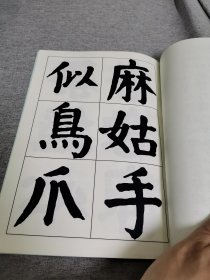 麻姑手
似鳥爪